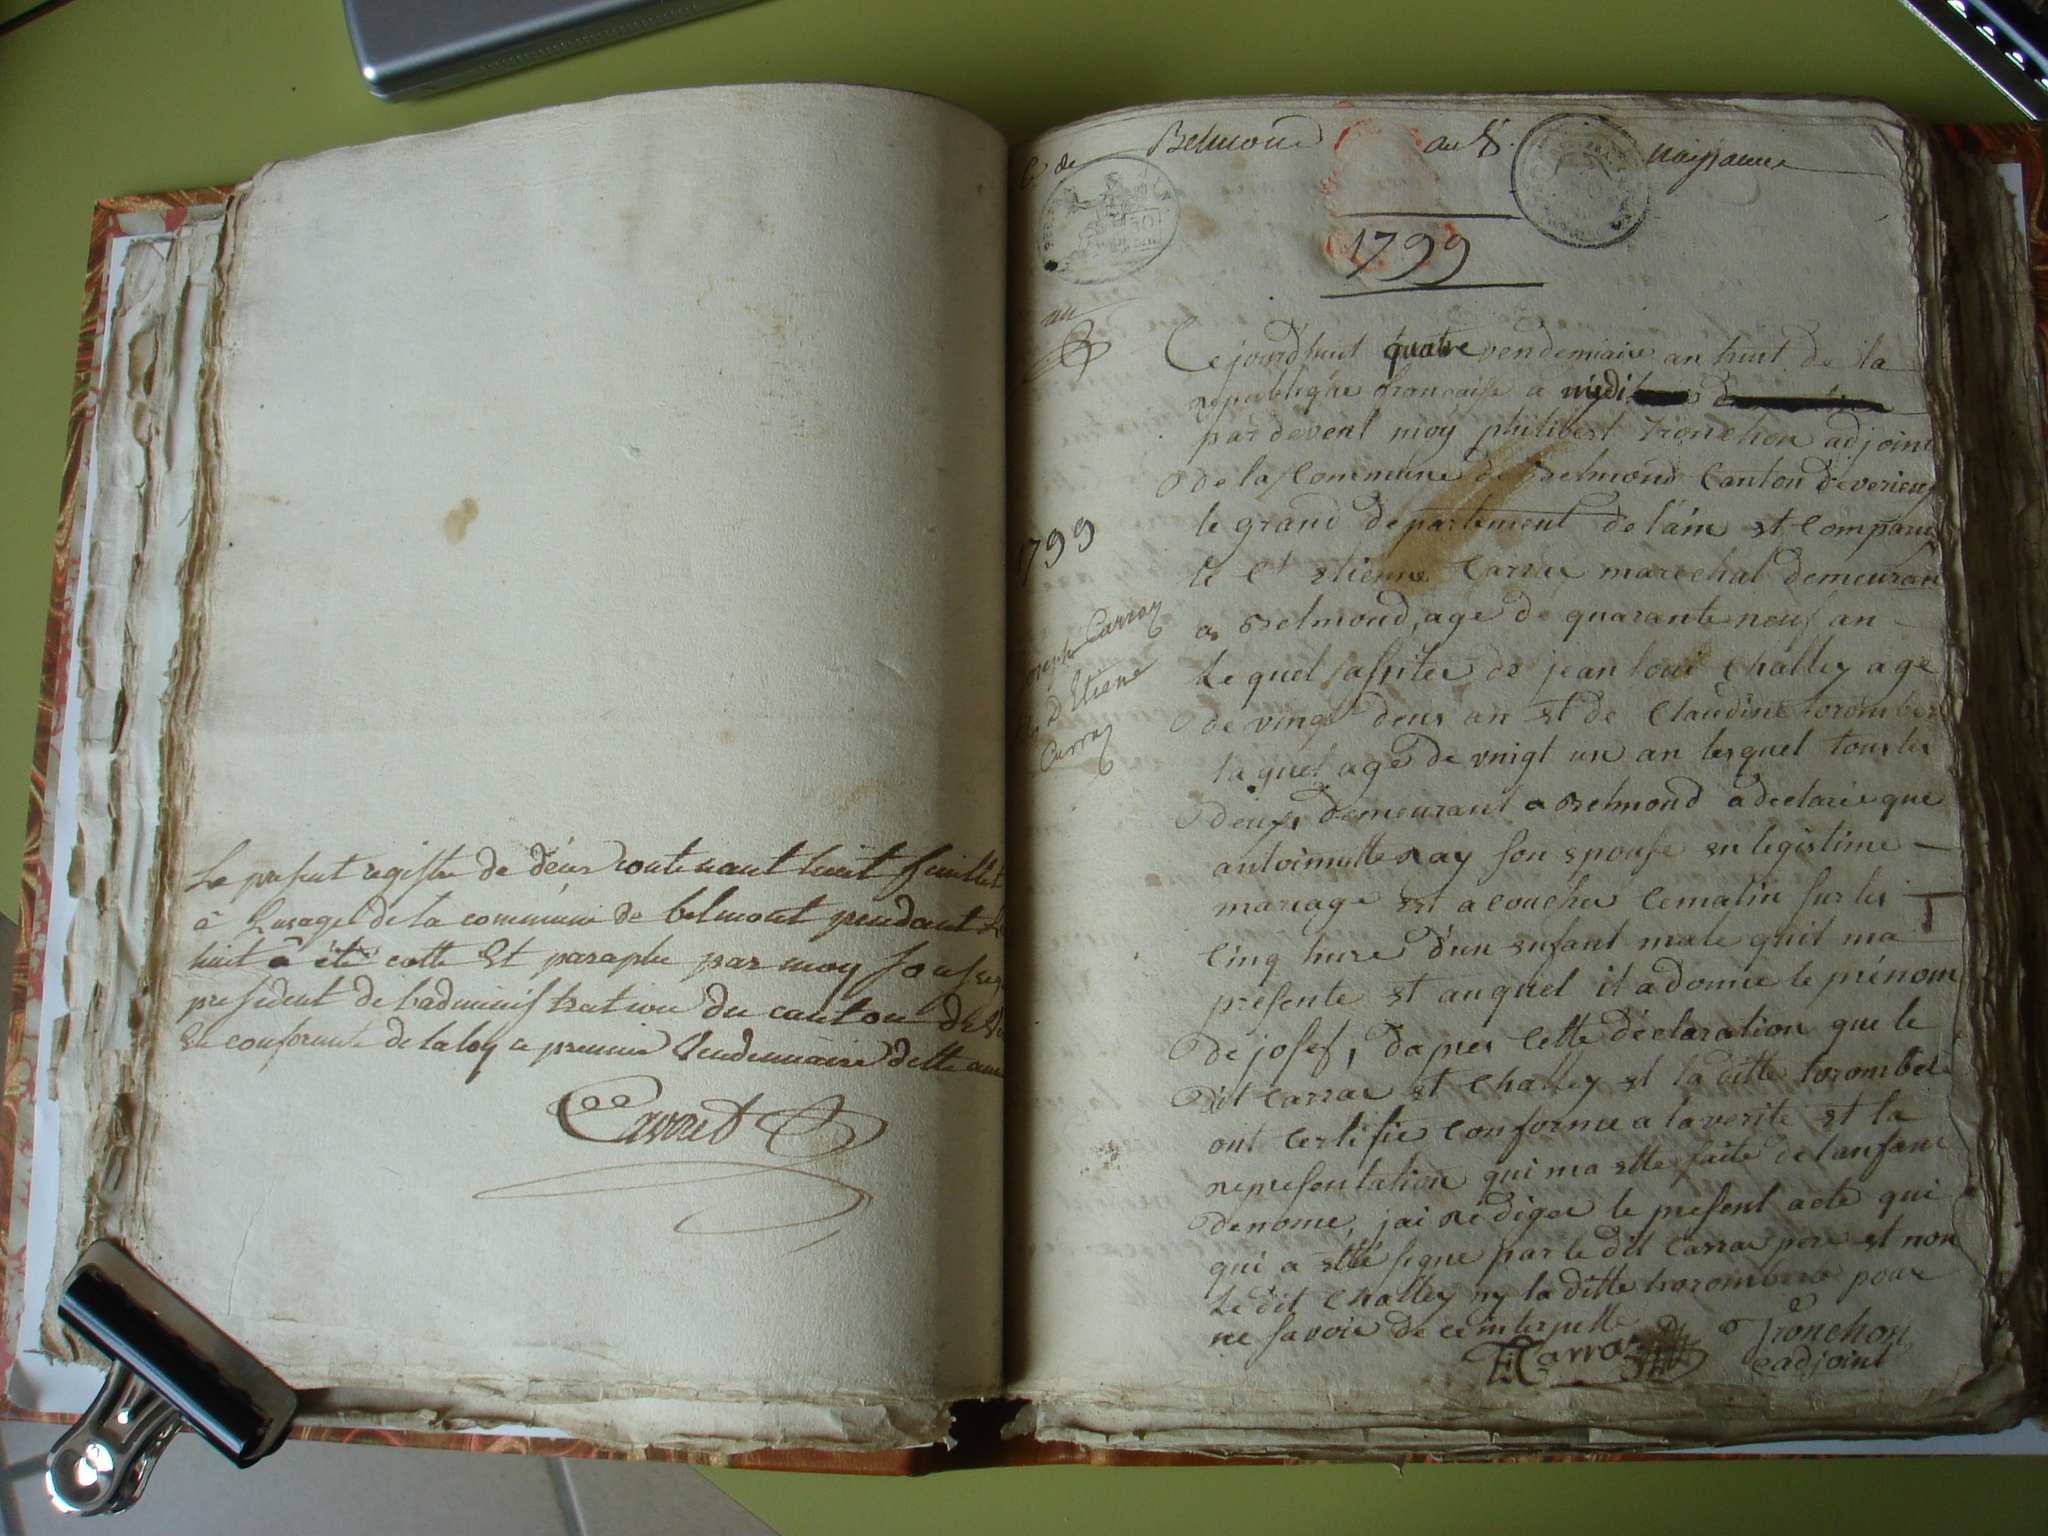 Le present registre de deux contenant huit feuillet
a Lusage de la commune de belmont pendant L
huit a été cotté Et paraphe par moy sous
president de Ladministration du canton de
En conformité de la loy ce premier Vendemiaire dette
Cavoret
Ce de Belmond an 8. naissance
1799
un
Ce jourdhuit quatre vendemiaire an huit de la
republique francaise a midi
par devent moy philibert Tronchon adjoint
de la Commune de Belmond Canton de verieux
le grand departement de lain Et Comparu
le Ct Etienne Carraz marechal demeurant
a Belmond, age de quarante neuf an
Le quel assiter de jean loui Challey age
de vingt deux an Et de Claudine toromber
la quel age de vingt un an lesquel tous les
deux demeurant a Belmond a declarer que
antoinette ray son Epouse en legistime
mariage Est acoucher ce matin sur les
Cinq hure d'un enfant male quil ma
presente Et auquel il a donne le prénom
de josef, dapres cette déclaration que le
dit Carraz Et Challey Et la ditte torombert
ont Certifie Conforme a la verite Et la
representation qui ma Ette faite de lanfant
denome, jai rediger le present acte qui
qui a Etté signe par le dit Carraz pere Et non
Le dit Challey ny la ditte torombero pour
ne savoir de ce interpelle
Carraz
Tronchon
adjoint
1799
joseph Carraz
fils d'Etiene
Carraz